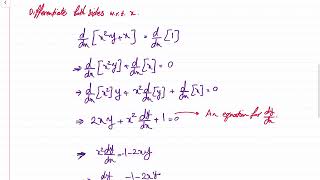 Differentiate both sides w.r.t. x.
d/dx [x²y + x] = d/dx [1]
⇒ d/dx [x²y] + d/dx [x] = 0
⇒ d/dx [x²] y + x² d/dx [y] + d/dx [x] = 0
⇒ 2xy + x² dy/dx + 1 = 0 → An equation for dy/dx.
⇒ x² dy/dx = -1-2xy
⇒ dy/dx = -1-2xy